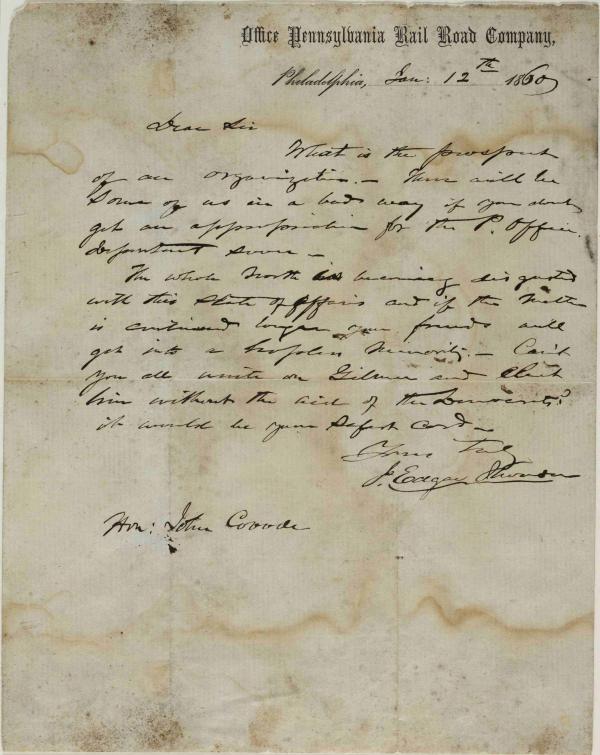 Office Pennsylvania Rail Road Company,
Philadelphia, Jan: 12th 1860
Dear Sir
What is the prospect
of an organization. – There will be
Some of us in a bad way if you dont
get an appropriation for the P. Office
Department soon –
The whole North is becoming disgusted
with this State of affairs and if the matter
is continued longer your friends will
get into a hopeless minority. – Can't
you all unite on Gilmer and Elect
him without the aid of the Democrats?
it would be your Safest Card –
Yours Truly
J. Edgar Thomson
Hon: John Covode